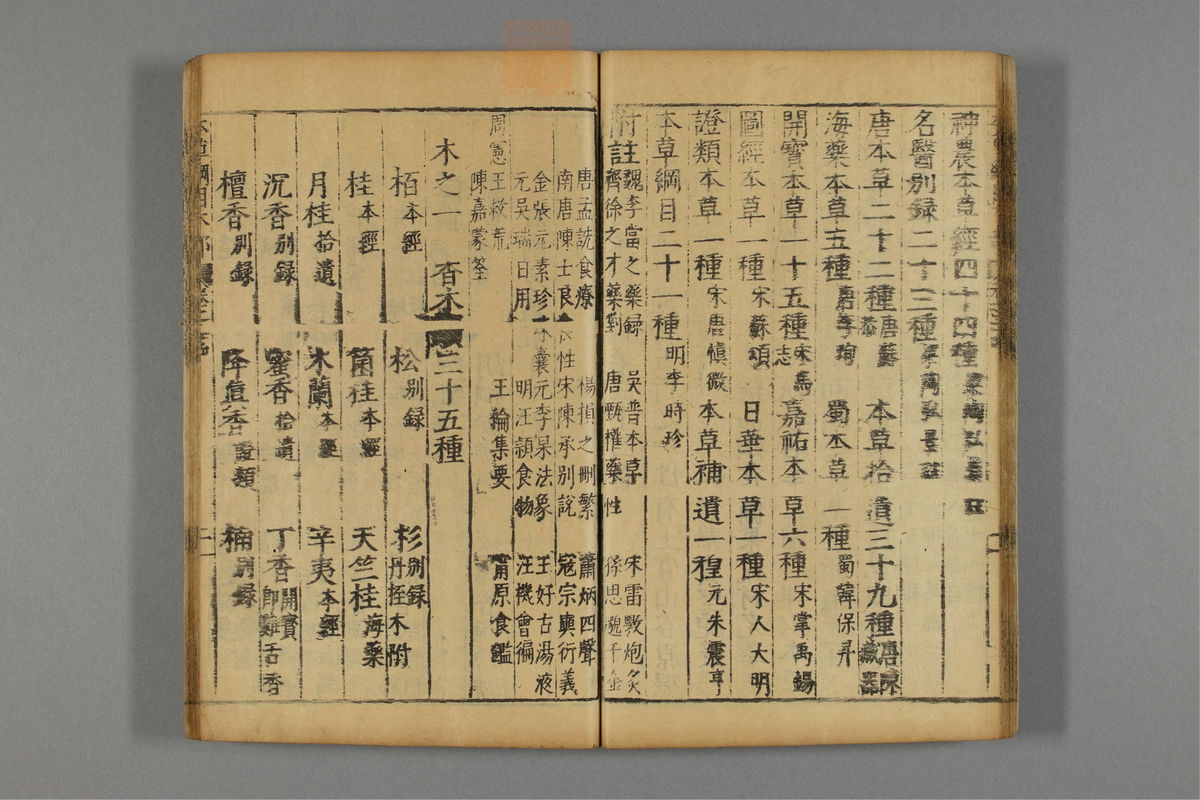 神農本草經四十四種
名醫別録二十三種
唐本草二十二種 唐蘇恭 本草拾遺三十九種 唐陳藏器
海藥本草五種 唐李珣 蜀本草一種 蜀韓保昇
開寶本草一十五種 宋馬志 嘉祐本草六種 宋掌禹錫
圖經本草一種 宋蘇頌 日華本草一種 宋人大明
證類本草一種 宋唐慎微 本草補遺一種 元朱震亨
本草綱目二十一種 明李時珍
附註 魏李當之藥録 吳普本草 宋雷斆炮炙
齊徐之才藥對 唐甄權藥性 孫思邈千金
唐孟詵食療 楊損之刪繁 蕭炳四聲
南唐陳士良食性 宋陳承別說 寇宗奭衍義
金張元素珍珠囊 元李杲法象 王好古湯液
元吳瑞日用 明汪穎食物 汪機會編
周憲王救荒 王綸集要 甯原食鑑
陳嘉謨蒙筌
木之一 香木三十五種
栢本經 松別録 杉別録 丹桎木附
桂本經 箘桂本經 天竺桂海藥
月桂拾遺 木蘭本經 辛夷本經
沉香別録 蜜香拾遺 丁香開寶 即雞舌香
檀香別録 降真香證類 楠別録